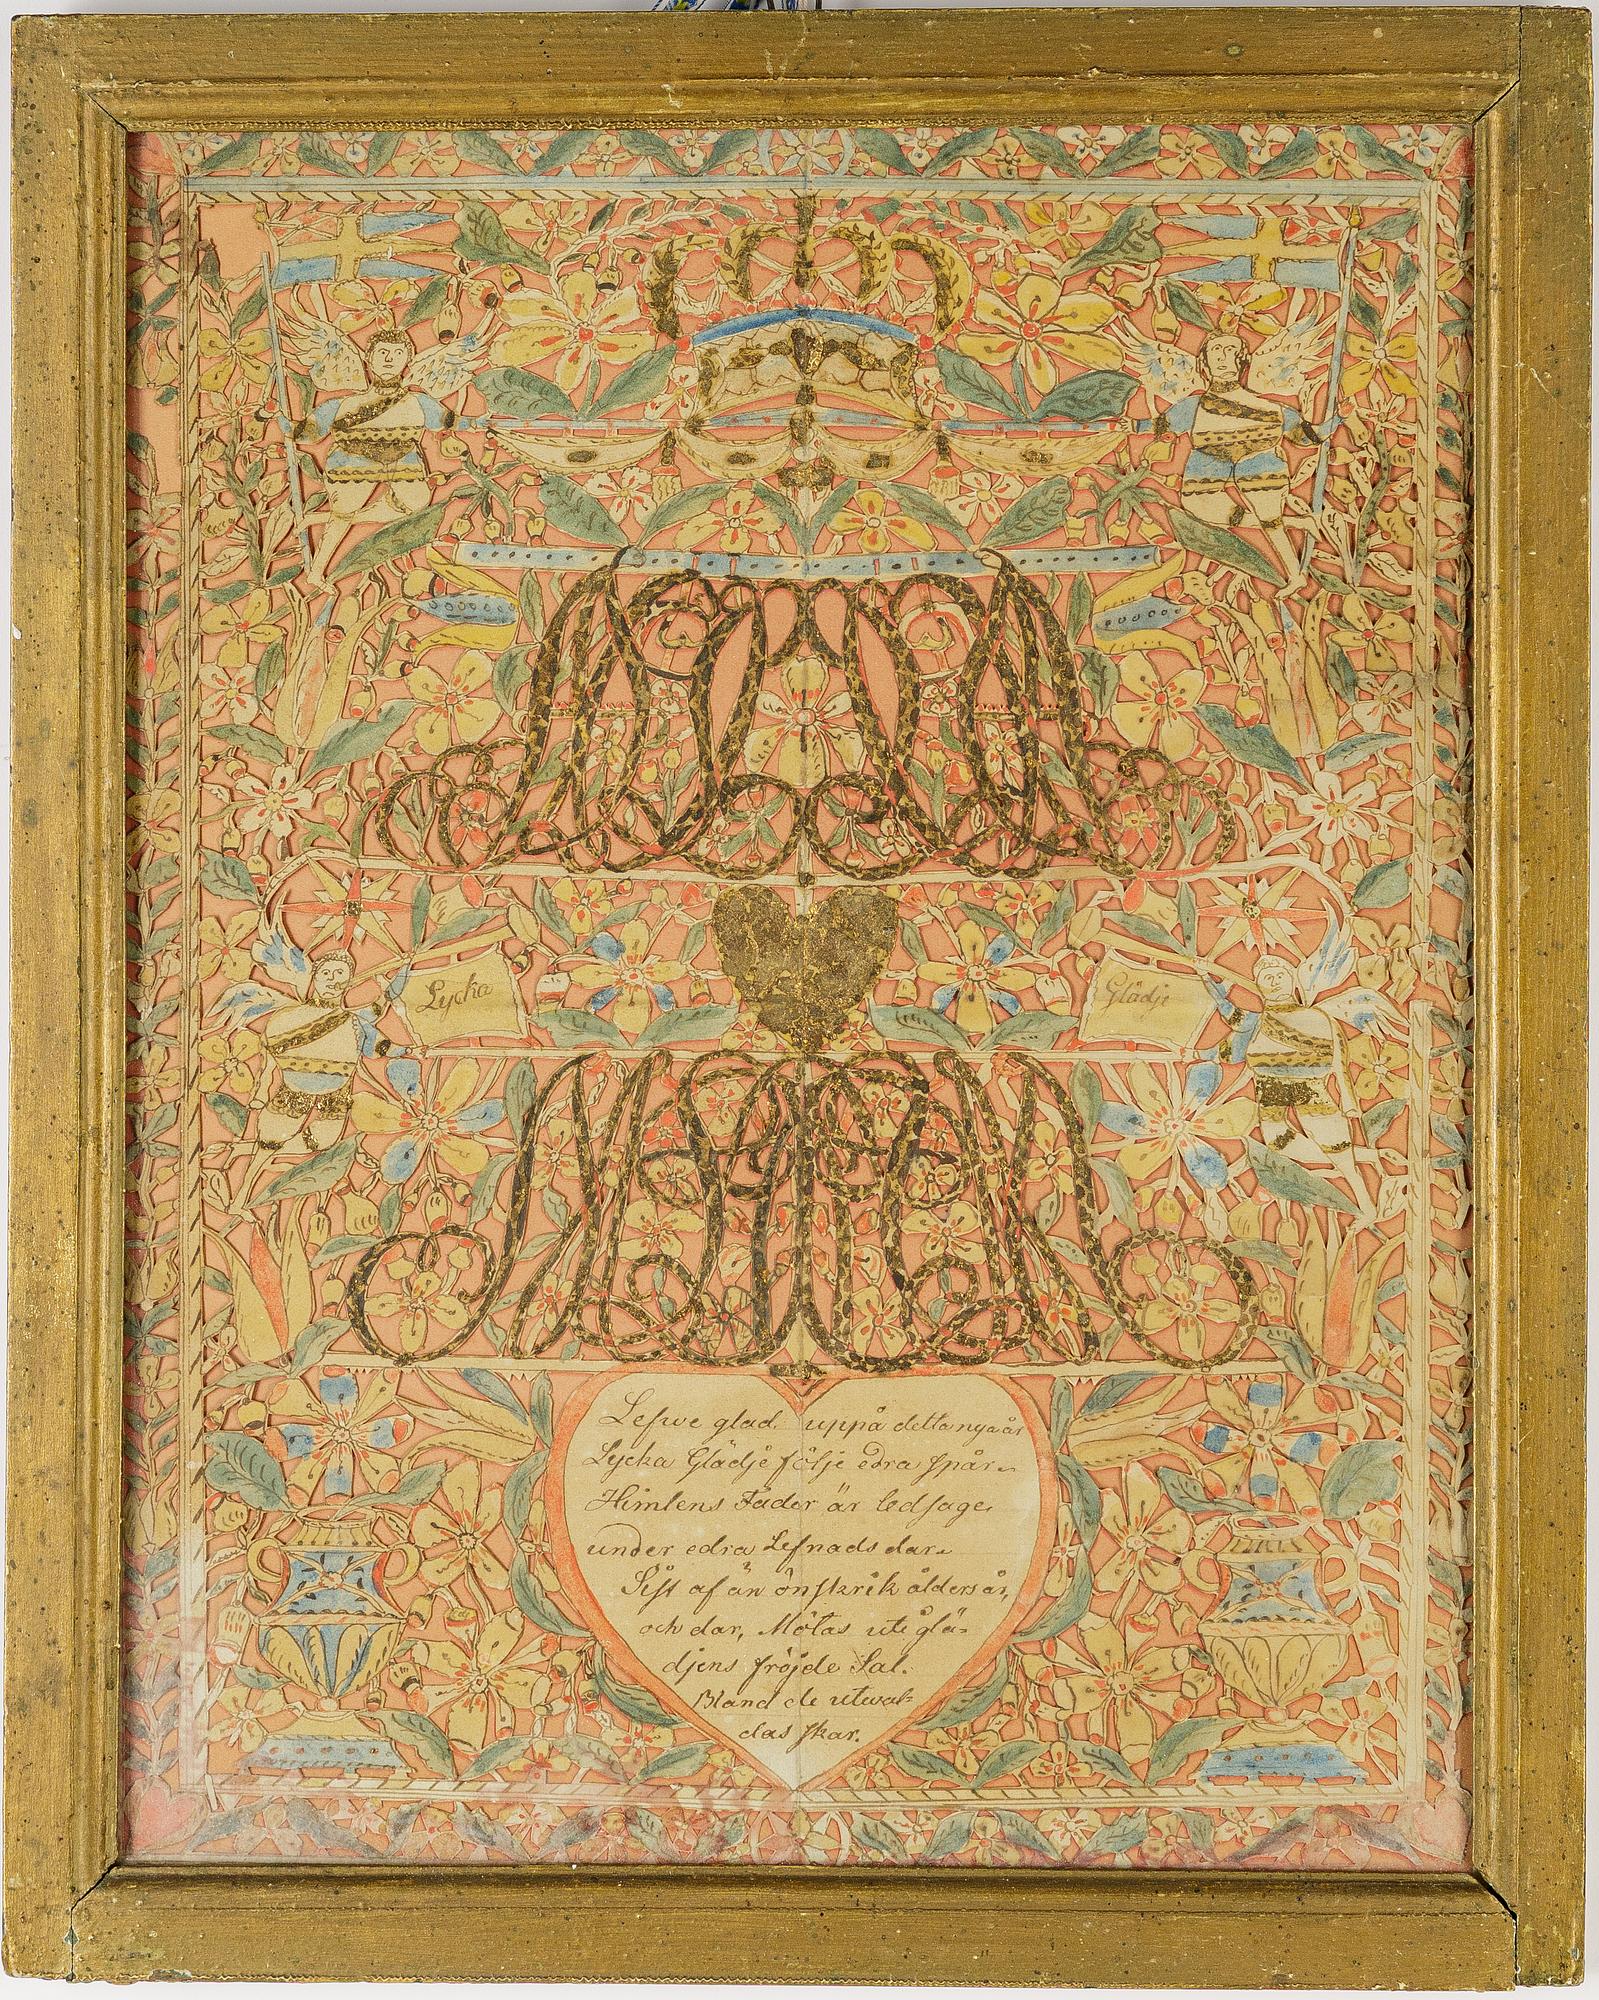 Lycka
Glädje
Lefwe glad uppå detta nya år
Lycka Glädje följe edra spår
Himlens Fader är ledsage
under edra Lefnads dar
Sist af än önskrik ålders år,
och dar, Mötas uti glä-
djens fröjde Sal.
Bland de utwal-
das skar.